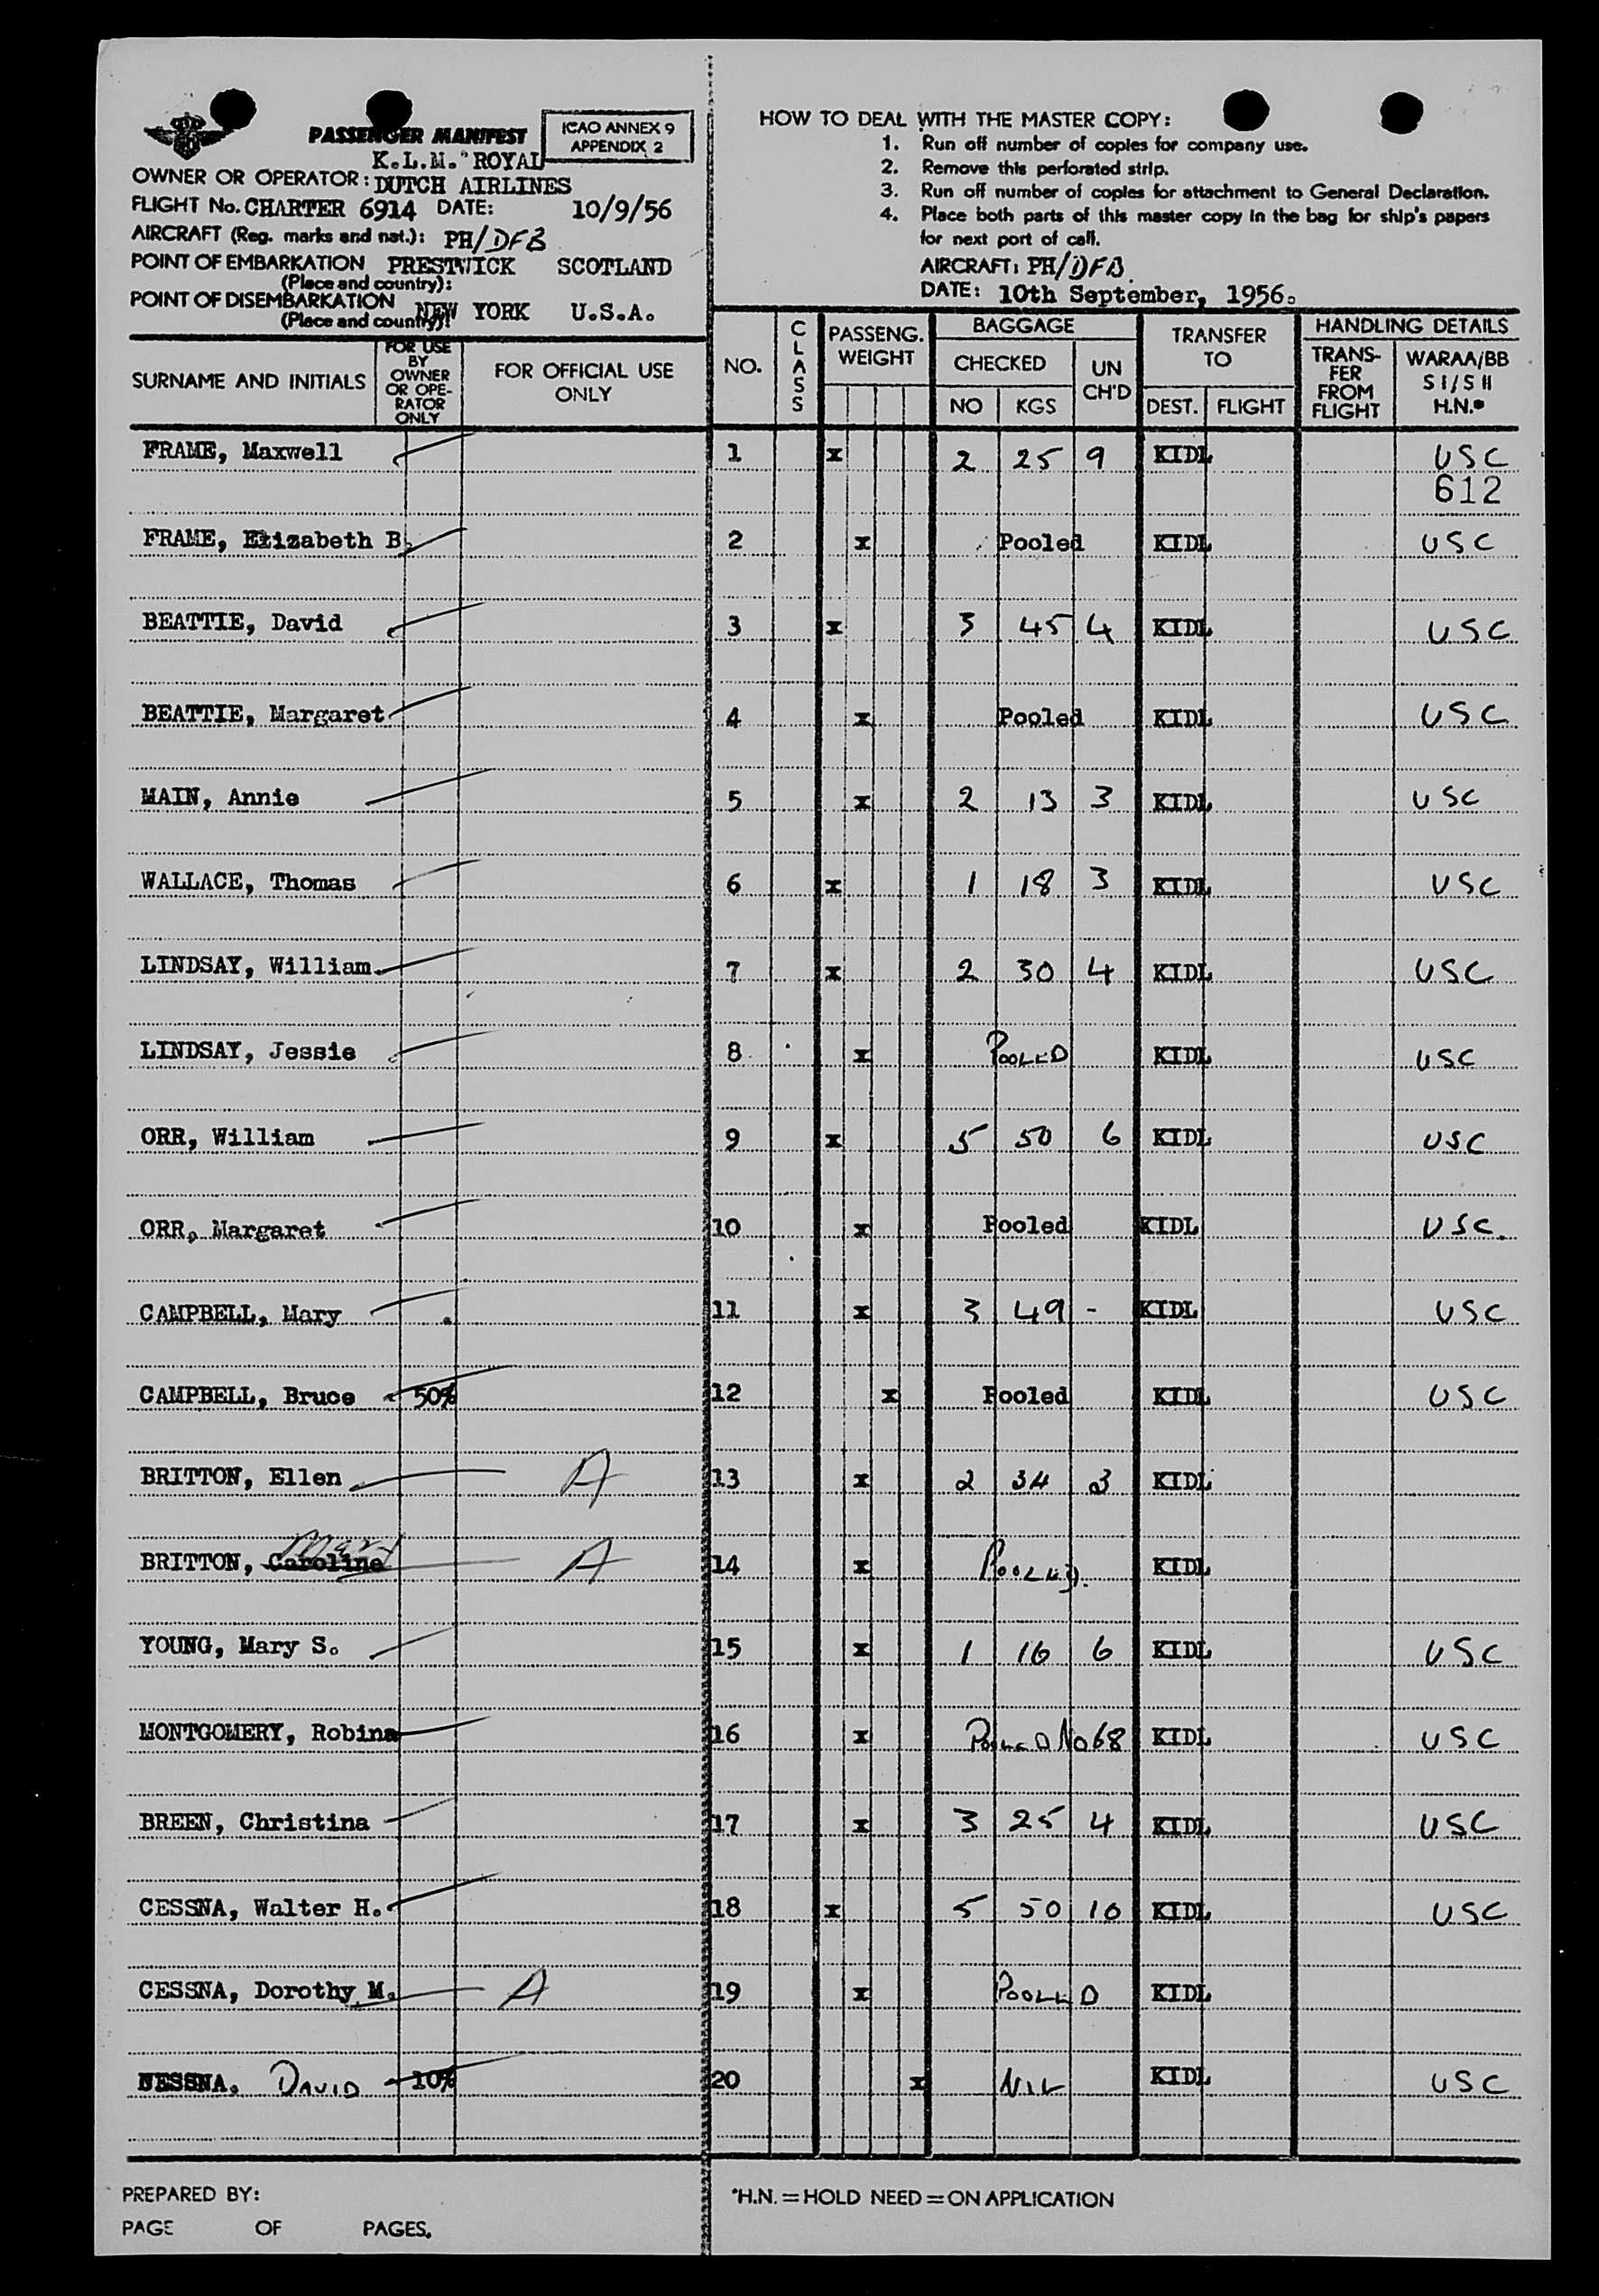 PASSENGER MANIFEST
ICAO ANNEX 9
APPENDIX 2
K.L.M. ROYAL
OWNER OR OPERATOR: DUTCH AIRLINES
FLIGHT No. CHARTER 6914 DATE: 10/9/56
AIRCRAFT (Reg. marks and nat.): PH/DFB
POINT OF EMBARKATION PRESTWICK SCOTLAND
(Place and country):
POINT OF DISEMBARKATION NEW YORK U.S.A.
(Place and country):
HOW TO DEAL WITH THE MASTER COPY:
1. Run off number of copies for company use.
2. Remove this perforated strip.
3. Run off number of copies for attachment to General Declaration.
4. Place both parts of this master copy in the bag for ship's papers
for next port of call.
AIRCRAFT: PH/DFB
DATE: 10th September, 1956.
SURNAME AND INITIALS
FOR USE BY OWNER OR OPE- RATOR ONLY
FOR OFFICIAL USE ONLY
NO.
CLASS
PASSENG. WEIGHT
BAGGAGE
CHECKED
NO KGS
UN CH'D
TRANSFER TO
DEST. FLIGHT
HANDLING DETAILS
TRANS- FER FROM FLIGHT
WARAA/BB S I/S II H.N.*
FRAME, Maxwell 1 x 2 25 9 KIDL USC
612
FRAME, Elizabeth B. 2 x Pooled KIDL USC
BEATTIE, David 3 x 3 45 4 KIDL USC
BEATTIE, Margaret 4 x Pooled KIDL USC
MAIN, Annie 5 x 2 13 3 KIDL USC
WALLACE, Thomas 6 x 1 18 3 KIDL USC
LINDSAY, William 7 x 2 30 4 KIDL USC
LINDSAY, Jessie 8 x POOLED KIDL USC
ORR, William 9 x 5 50 6 KIDL USC
ORR, Margaret 10 x Pooled KIDL USC.
CAMPBELL, Mary 11 x 3 49 - KIDL USC
CAMPBELL, Bruce 50% 12 x Pooled KIDL USC
BRITTON, Ellen A 13 x 2 34 3 KIDL
Mary
BRITTON, Caroline A 14 x POOLED. KIDL
YOUNG, Mary S. 15 x 1 16 6 KIDL USC
MONTGOMERY, Robina 16 x POOLED No 68 KIDL USC
BREEN, Christina 17 x 3 25 4 KIDL USC
CESSNA, Walter H. 18 x 5 50 10 KIDL USC
CESSNA, Dorothy M. A 19 x POOLED KIDL
NESSNA. DAVID 10% 20 x NIL KIDL USC
PREPARED BY:
PAGE OF PAGES.
*H.N. = HOLD NEED = ON APPLICATION